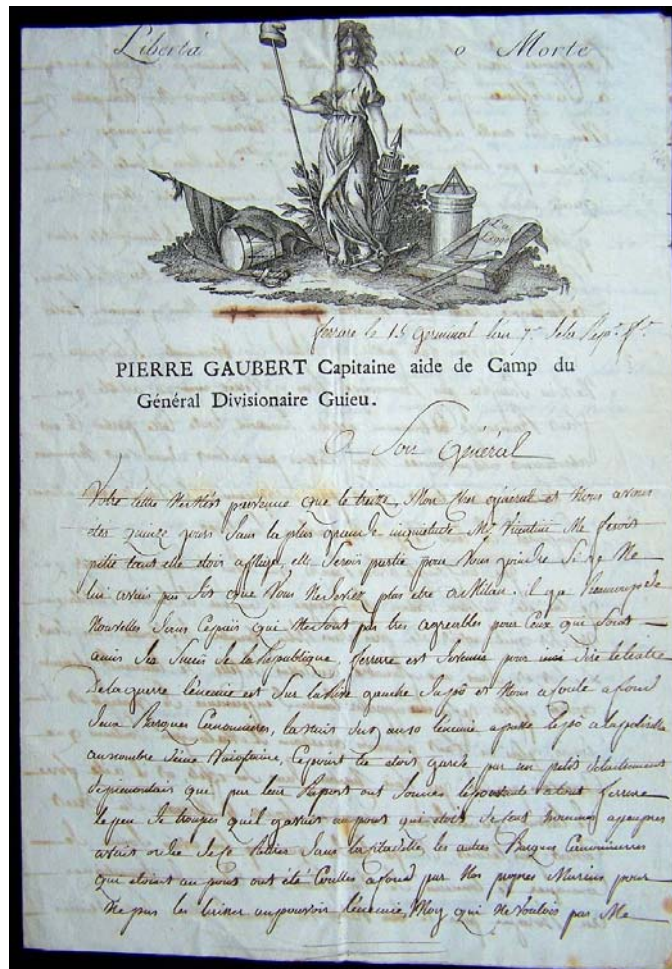 Libertà o Morte
La Legge
ferrare le 15 Germinal l'an 7.e de la Rep.e f.se
PIERRE GAUBERT Capitaine aide de Camp du
Général Divisionaire Guieu.
A Son Général
Votre lettre parvenue que le treize. Mon cher général et Nous avons
eté quinze jours dans la plus grande inquietude Me ferois
pitié tant elle etois afligé, elle serois partie pour Vous joindre Si je Ne
lui avais pas dit que Vous Ne deviez plus etre a Milan. il y a Beaucoup de
Nouvelles dans Cepais qui Ne Sont pas tres agreables pour Ceux qui Sont
amis des Succes de la Republique, ferrare est devenue pour ainsi dire le teatre
De la guerre l'enemie est Sur la Rive gauche du pô et Nous a coulé a fond
deux Barques Canonnieres, la nuit du au 10 l'enemie a passé le pô a la
au nombre d'une Vaigtaine, Cepoint etois gardé par un petit detachement
de piemontais que par leur Raport ont donnés a tout ferrare
le peu de troupes qu'il y avait au pont qui etoit de Cent hommes apeupres
avait ordre de Se Retirer dans la Citadelle, les autres Barques Canonnieres
que etoient au pont ont été Coullés a fond par Nos propres Marins pour
Ne pas les laisser au pouvoir l'enemie, Moy qui Ne Voulois pas Me